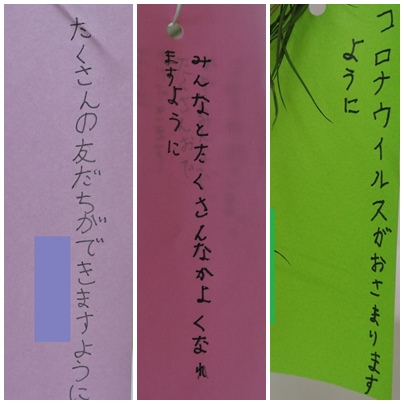 たくさんの友だちができますように
みんなとたくさんなかよくなれ
ますように
コロナウイルスがおさまります
ように